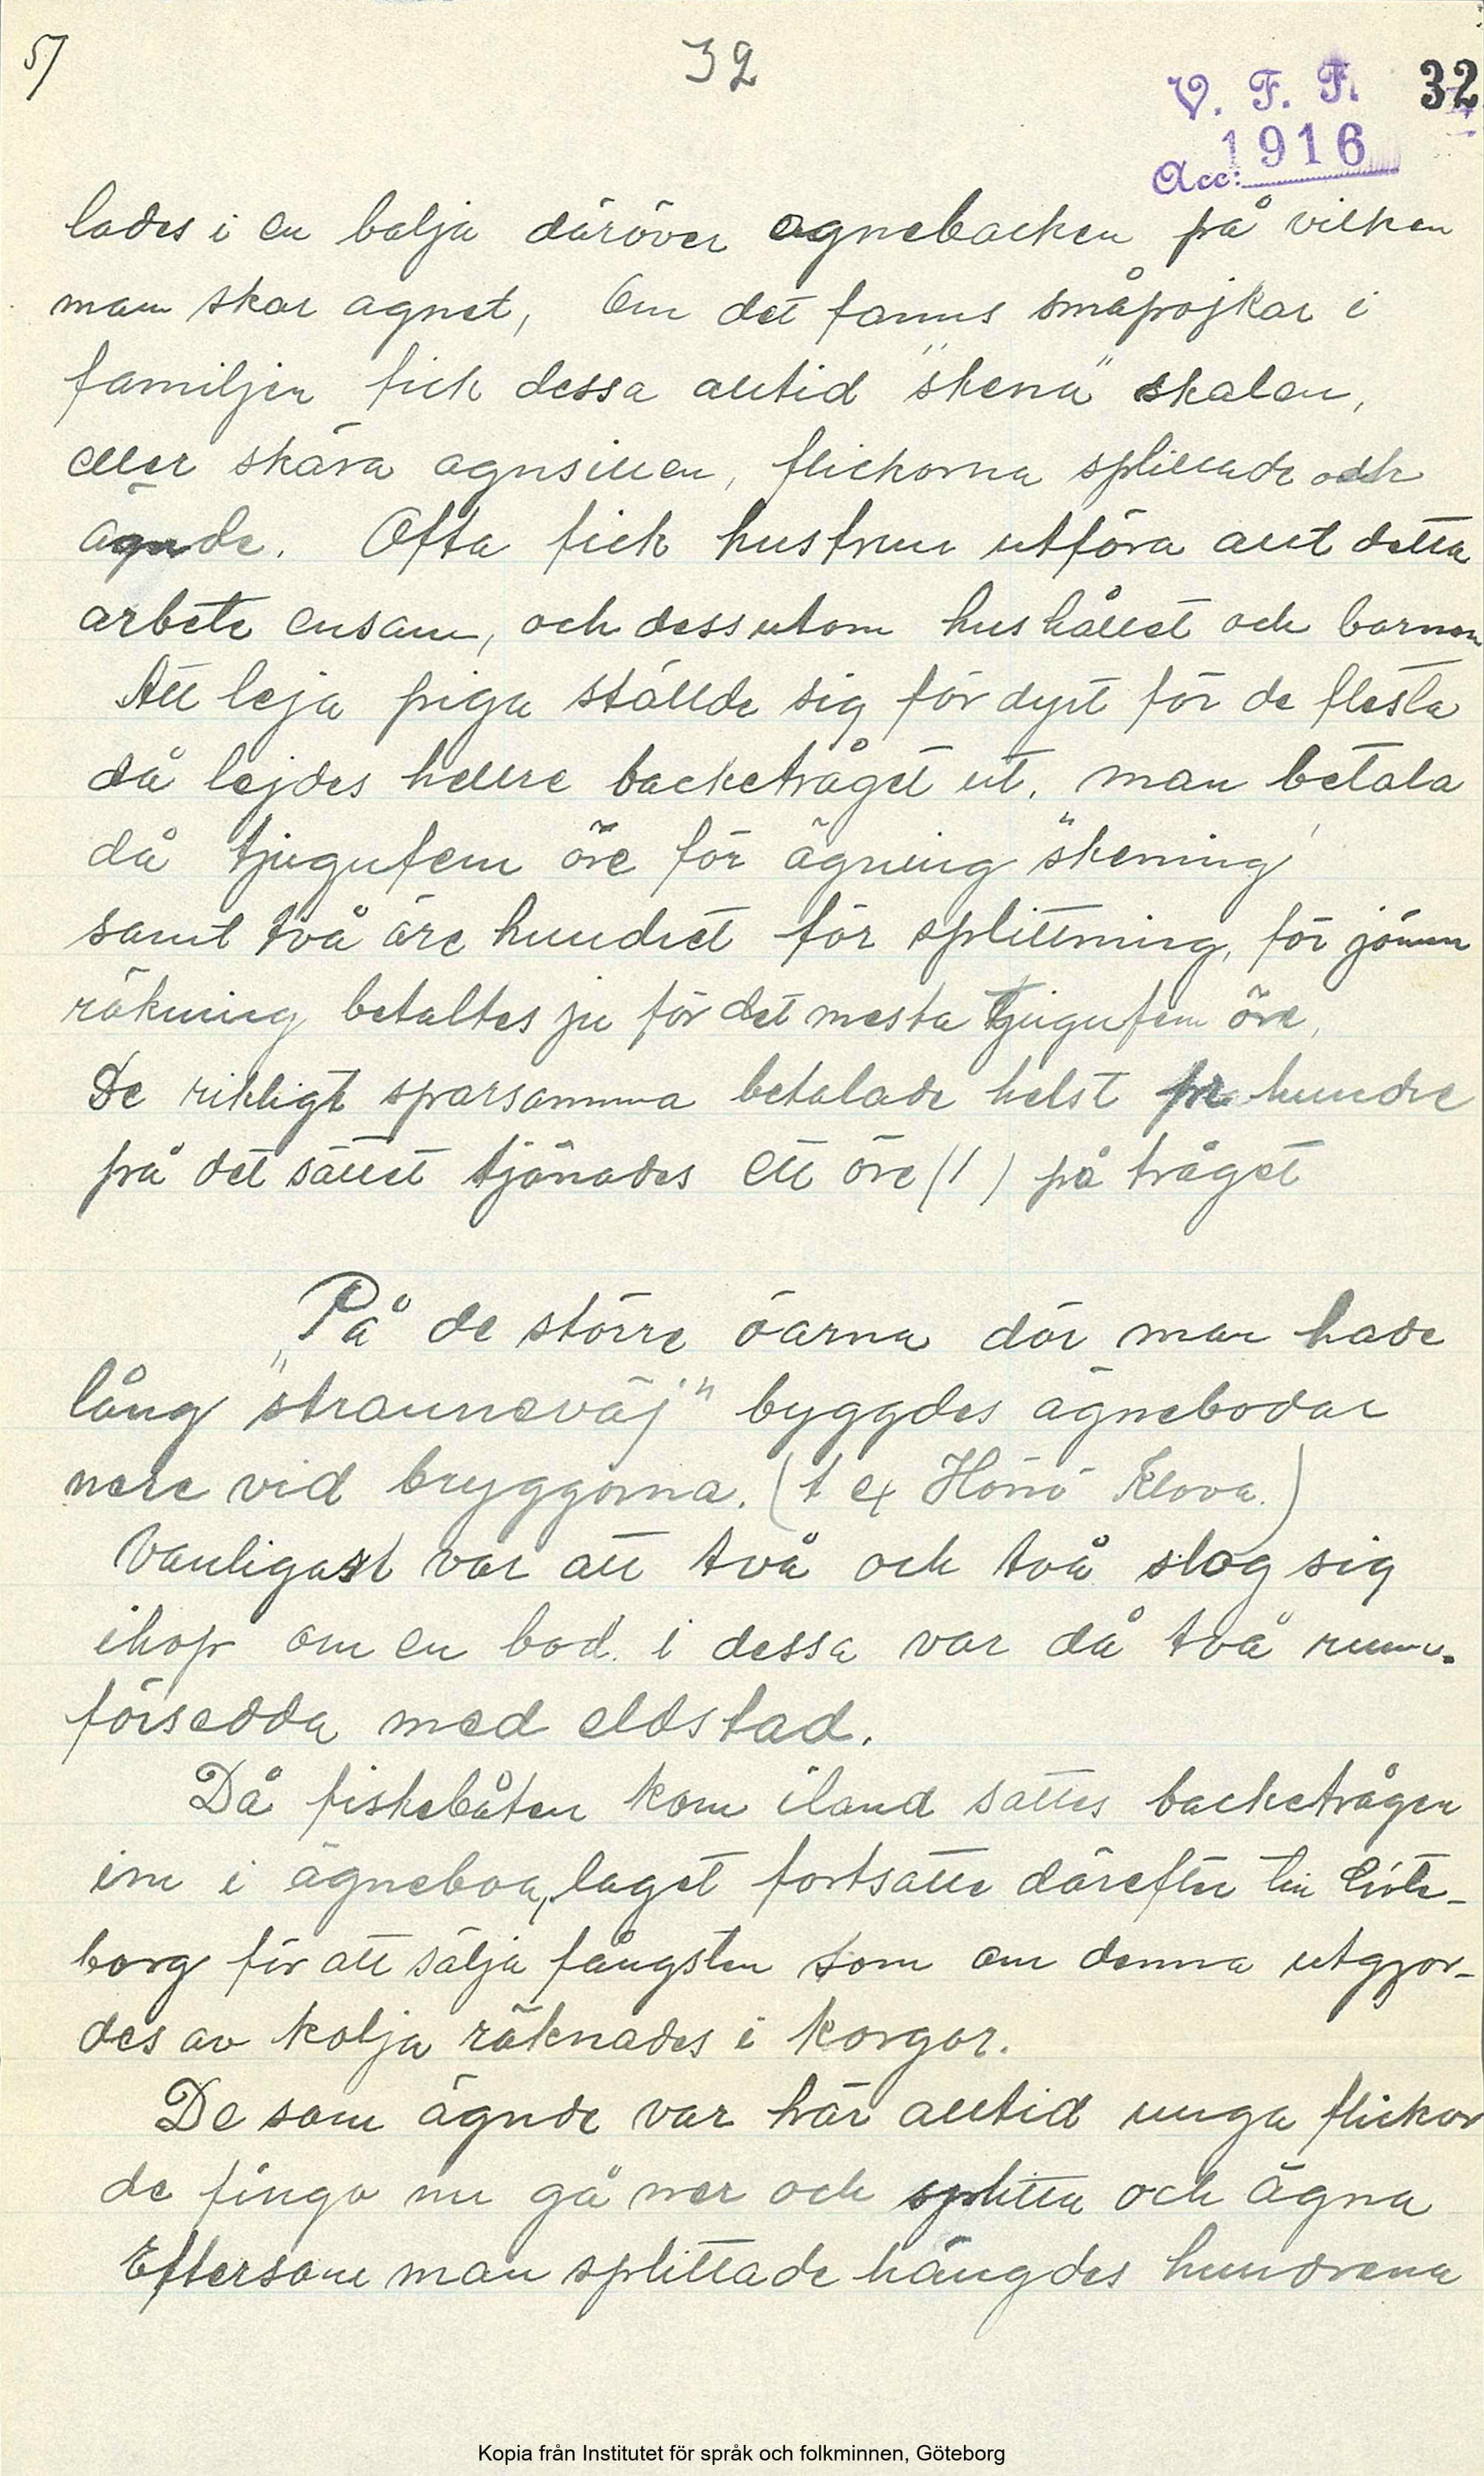 5/
32
V. F. F. 32
Acc: 1916
lades i en balja däröver agnebacken på vilken
man skar agnet, Om det fanns småpojkar i
familjen fick dessa alltid "skena" skalen,
eller skära agnsillen, flickorna splittade och
ägnde. Ofta fick hustrun utföra allt detta
arbete ensam, och dessutom hushållet och barnen
Att leja piga ställde sig för dyrt för de flesta
då lejdes hellre backetråget ut, man betala
då tjugufem öre för ägning "skening
samt två öre hundret för splittning, för jämn
räkning betaltes ju för det mesta tjugufem öre,
De riktigt sparsamma betalade helst pr hundre
på det sättet tjänades ett öre (1) på tråget
"På de större öarna där man hade
lång "stranneväj" byggdes ägnebodar
nere vid bryggorna. (t ex Hönö Klova.)
Vanligast var att två och två slog sig
ihop om en bod. i dessa var då två rum.
försedda med eldstad.
Då fiskebåten kom iland sattes backetrågen
in i ägneboa, laget fortsatte därefter till Göte-
borg för att sälja fångsten som om denna utgjor-
des av kolja räknades i korgor.
De som ägnde var här alltid unga flickor
de fingo nu gå ner och splitta och ägna
Eftersom man splittade hängdes hundrena
Kopia från Institutet för språk och folkminnen, Göteborg